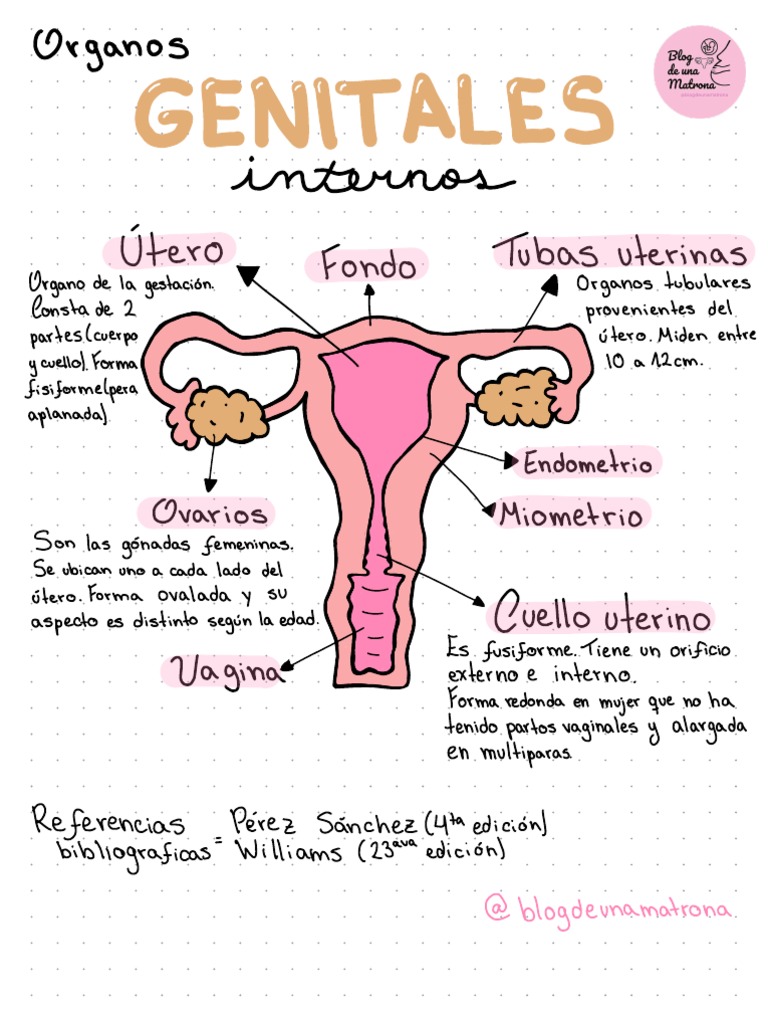 Organos
GENITALES
internos
Blog
de una
Matrona
Útero
Organo de la gestación.
Consta de 2
partes(cuerpo
y cuello). Forma
fisiforme(pera
aplanada)
Fondo
Tubas uterinas
Organos tubulares
provenientes del
útero. Miden entre
10 a 12cm.
Endometrio
Miometrio
Ovarios
Son las gónadas femeninas.
Se ubican uno a cada lado del
útero. Forma ovalada y su
aspecto es distinto según la edad.
Cuello uterino
Es fusiforme. Tiene un orificio
externo e interno.
Forma redonda en mujer que no ha
tenido partos vaginales y alargada
en multiparas.
Vagina
Referencias
bibliograficas = Pérez Sánchez (4ta edición)
Williams (23ava edición)
@blogdeunamatrona